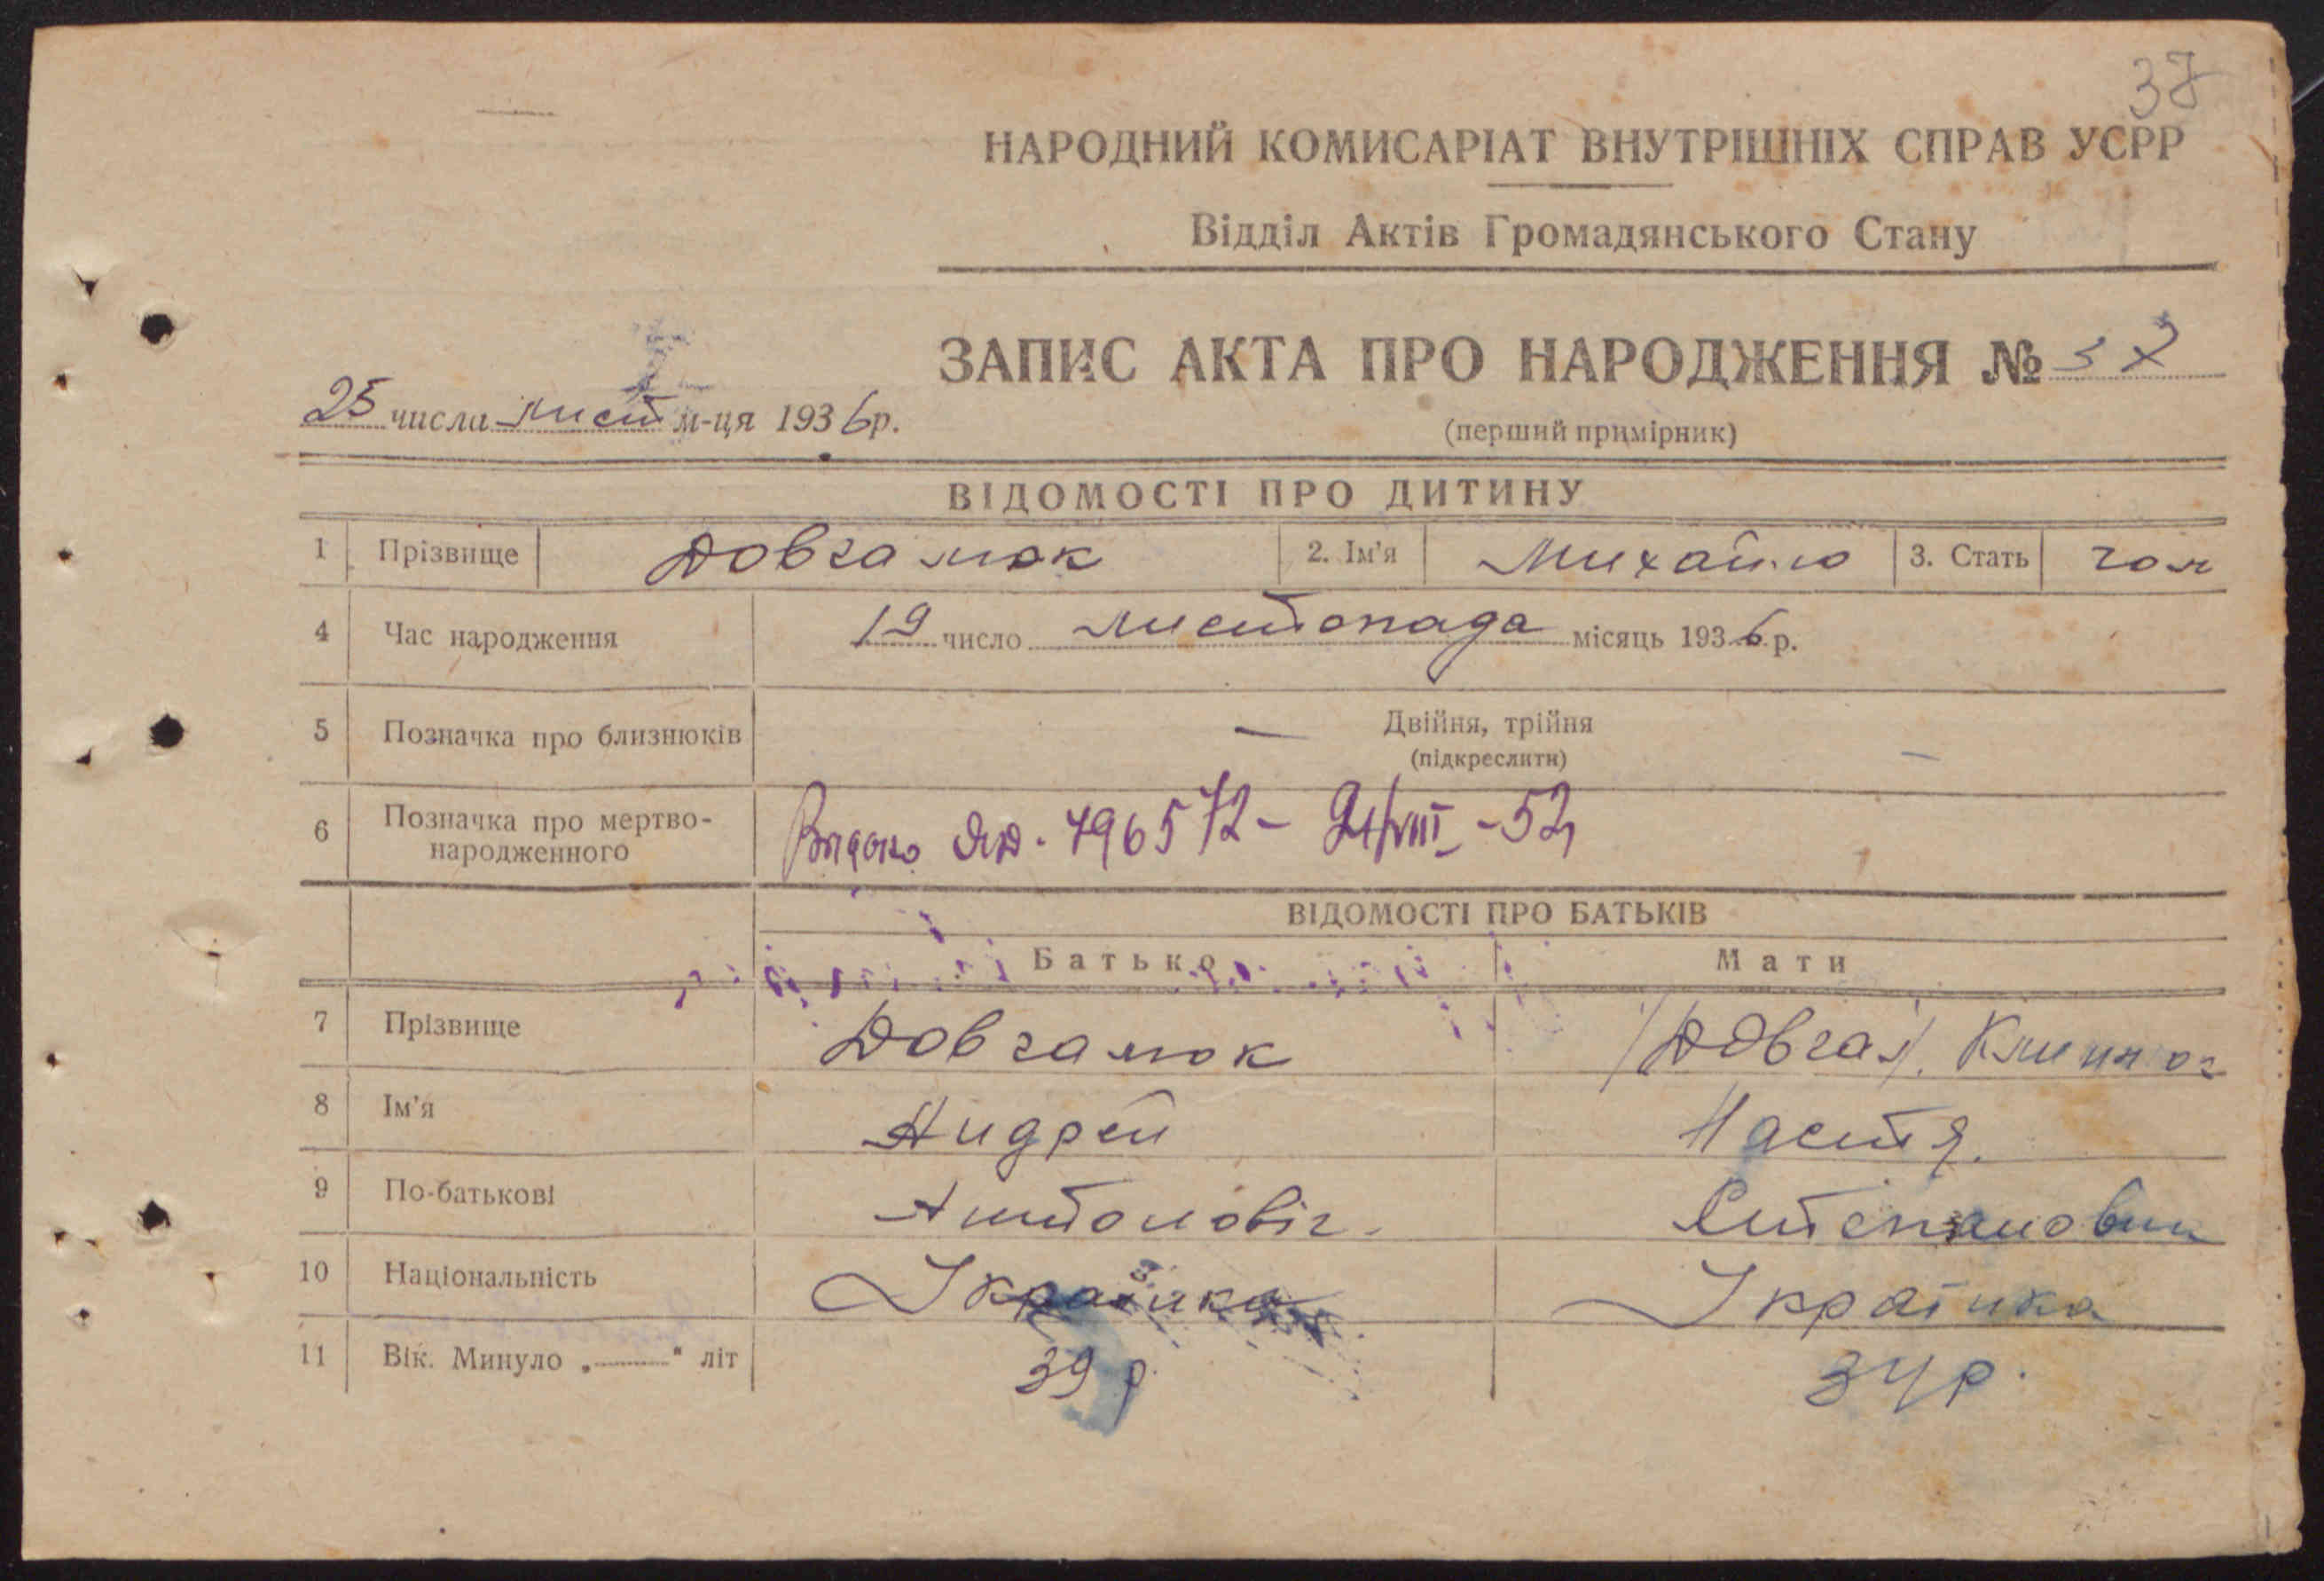 37
НАРОДНИЙ КОМИСАРІАТ ВНУТРІШНІХ СПРАВ УСРР
Відділ Актів Громадянського Стану
ЗАПИС АКТА ПРО НАРОДЖЕННЯ № 37
25 числа лист м-ця 1936 р.
(перший примірник)
ВІДОМОСТІ ПРО ДИТИНУ
1 Прізвище Довгалюк 2. Ім'я Михайло 3. Стать чол
4 Час народження 19 число листопада місяць 1936 р.
5 Позначка про близнюків — Двійня, трійня —
(підкреслити)
6 Позначка про мертво-
народженного
496572 - 21/VIII - 52
ВІДОМОСТІ ПРО БАТЬКІВ
Батько Мати
7 Прізвище Довгалюк /Довгал/.
8 Ім'я Андрей Настя.
9 По-батькові Антоновіч. Степановн
10 Національність Українка Українка
11 Вік. Минуло „ — " літ 39 р. 34 р.